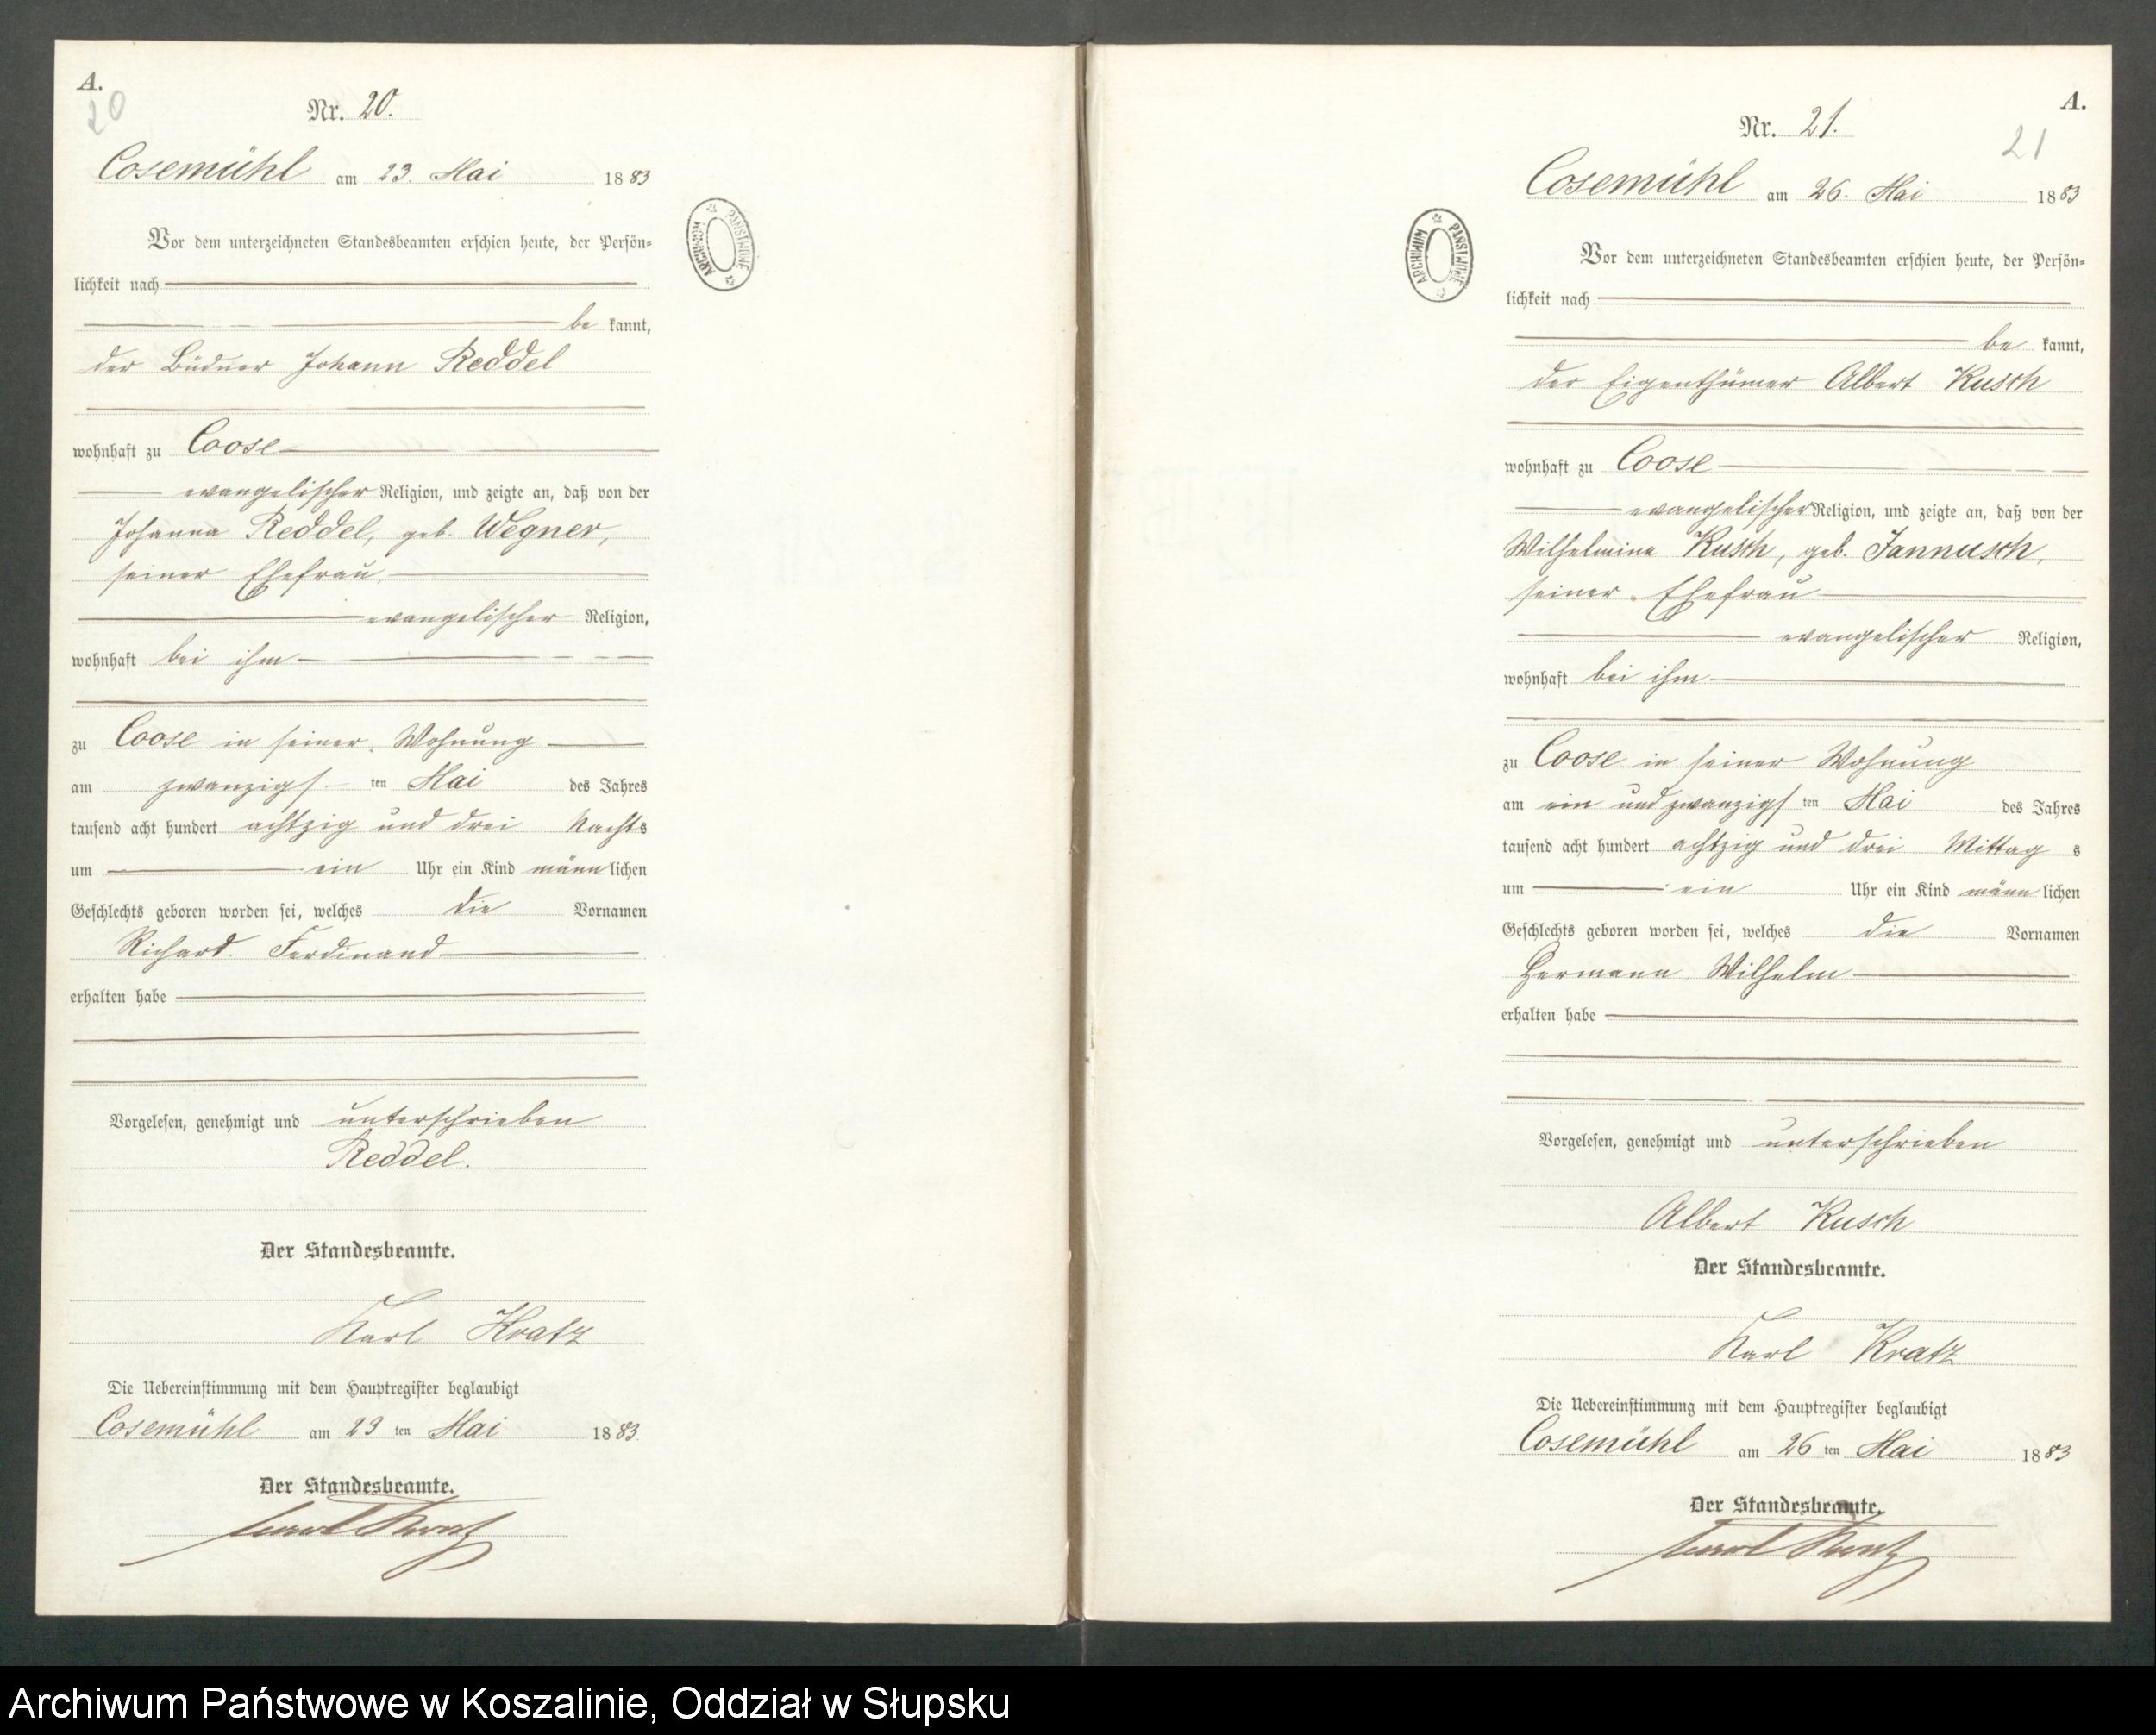 A.
20
Nr. 20.
Cosemühl am 23. Mai 1883
Vor dem unterzeichneten Standesbeamten erschien heute, der Persön-
lichkeit nach
be kannt,
der Büdner Johann Reddel
wohnhaft zu Coose
evangelischer Religion, und zeigte an, daß von der
Johanna Reddel, geb. Wegner,
seiner Ehefrau
evangelischer Religion,
wohnhaft bei ihm
zu Coose in seiner Wohnung
am zwanzigsten Mai des Jahres
tausend acht hundert achtzig und drei Nachts
um ein Uhr ein Kind männlichen
Geschlechts geboren worden sei, welches die Vornamen
Richard Ferdinand
erhalten habe
Vorgelesen, genehmigt und unterschrieben
Reddel.
Der Standesbeamte.
Karl Kratz
Die Uebereinstimmung mit dem Hauptregister beglaubigt
Cosemühl am 23 ten Mai 1883.
Der Standesbeamte.
Karl Kratz
ARCHIWUM PAŃSTWOWE
A.
21
Nr. 21.
Cosemühl am 26. Mai 1883
Vor dem unterzeichneten Standesbeamten erschien heute, der Persön-
lichkeit nach
be kannt,
der Eigenthümer Albert Kusch
wohnhaft zu Coose
evangelischer Religion, und zeigte an, daß von der
Wilhelmine Kusch, geb. Jannusch,
seiner Ehefrau
evangelischer Religion,
wohnhaft bei ihm
zu Coose in seiner Wohnung
am ein und zwanzigsten Mai des Jahres
tausend acht hundert achtzig und drei Mittags
um ein Uhr ein Kind männlichen
Geschlechts geboren worden sei, welches die Vornamen
Hermann Wilhelm
erhalten habe
Vorgelesen, genehmigt und unterschrieben
Albert Kusch
Der Standesbeamte.
Karl Kratz
Die Uebereinstimmung mit dem Hauptregister beglaubigt
Cosemühl am 26 ten Mai 1883
Der Standesbeamte.
Karl Kratz
ARCHIWUM PAŃSTWOWE
Archiwum Państwowe w Koszalinie, Oddział w Słupsku